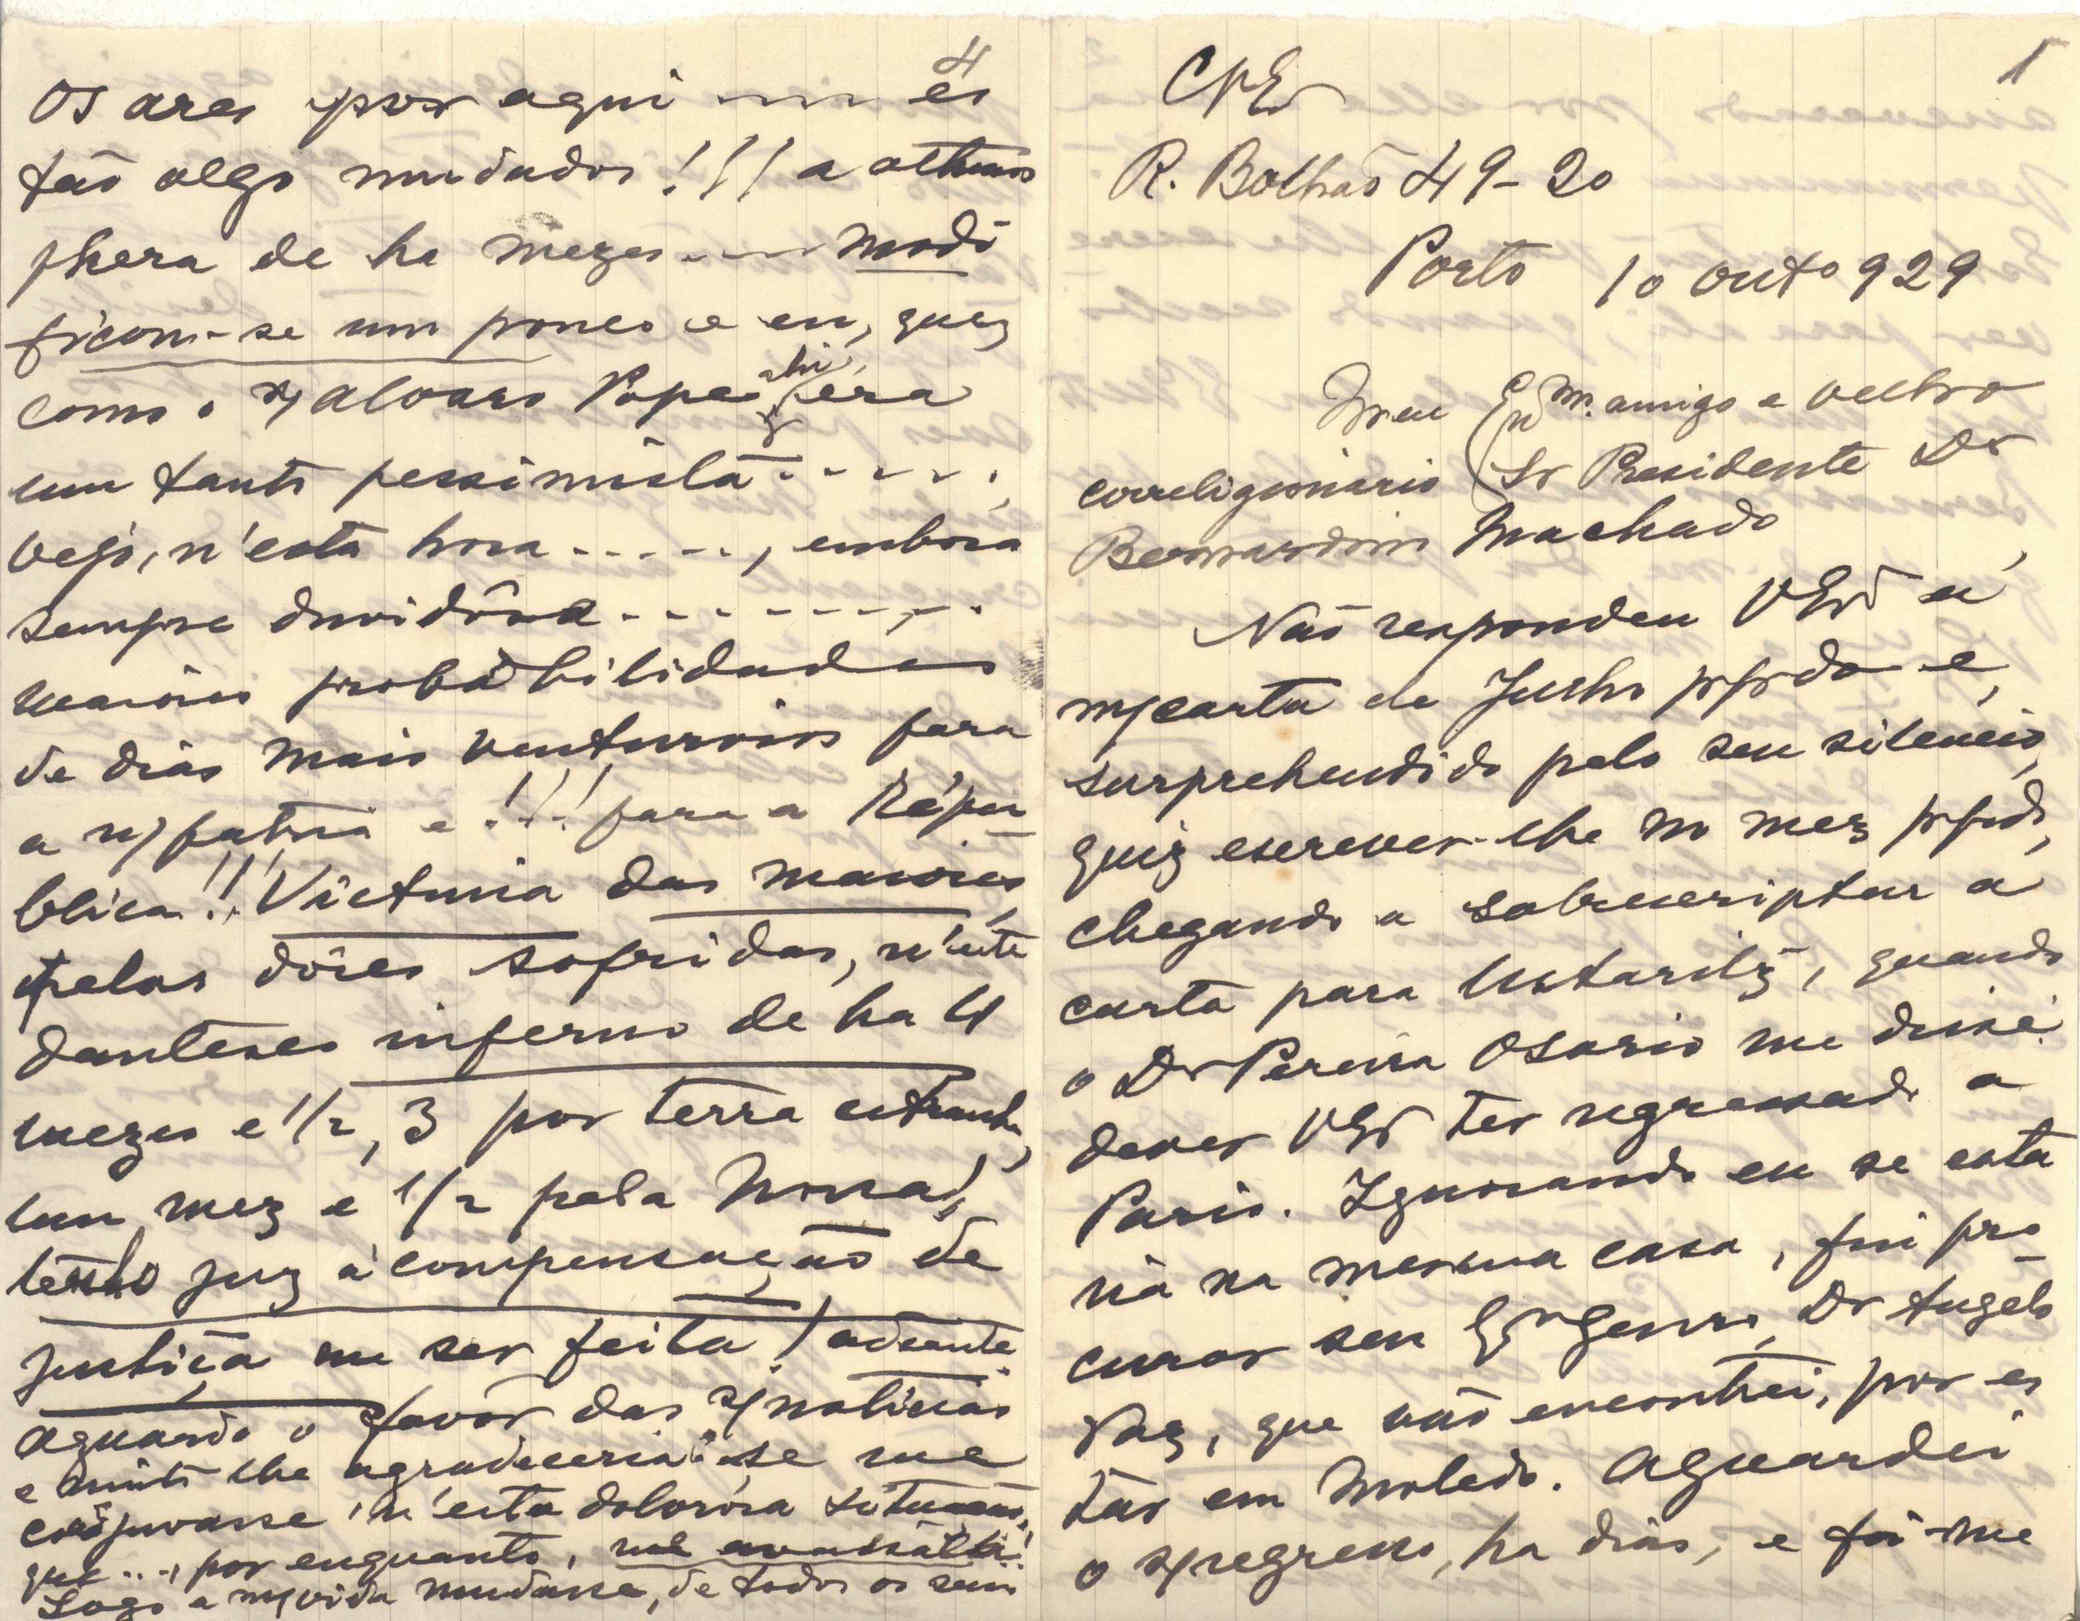 4
Os ares por aqui .... es
tão algo mudados!!! a athmos
phera de ha mezes .... modi
ficou-se um pouco e eu, quez
como o n/ Alvaro Pope ahi era
um tanto pessimista.....,
vejo, n'esta hora ....., embora
sempre duvidôsa ........
maióres probabilidades
de dias mais venturosos para
a n/ patria e !!! para a Répu
blica!!! Victima das maióres
pelas dôres sofridas, n'este
dantesco inferno de ha 4
mezes e 1/2, 3 por terra extranha,
um mez e 1/2 pela Nossa!,
tenho juz á compensação de
justiça me ser feita! adeante
Aguardo o favôr das s/ noticias
e muito lhe agradeceria se me
coadjuvasse n'esta dolorósa situação,
que ..., por enquanto, me avassálla!
Logo a m/ vida mudasse, de todos os seus
1
R. Bolhão 49-2o
Porto 10 Outo 929
Meu Exmo. amigo e velho
correligionario Sr Presidente Dr
Bernardino Machado
Não respondeu VEx á
m/ carta de Julho p.p.do e,
surprehendido pelo seu silencio,
quiz escrever-lhe no mez p.pdo,
chegando a sobrescriptar a
carta para Ustaritz, quando
o Dr Pereira Osorio me disse
dever VEx ter regressado a
Paris. Ignorando eu se esta
ria na mesma casa, fui pro
curar seu Exmo Genro, Dr Angelo
Vaz, que não encontrei, por es
tar em Moledo. Aguardei
o s/ regresso, ha dias, e foi-me